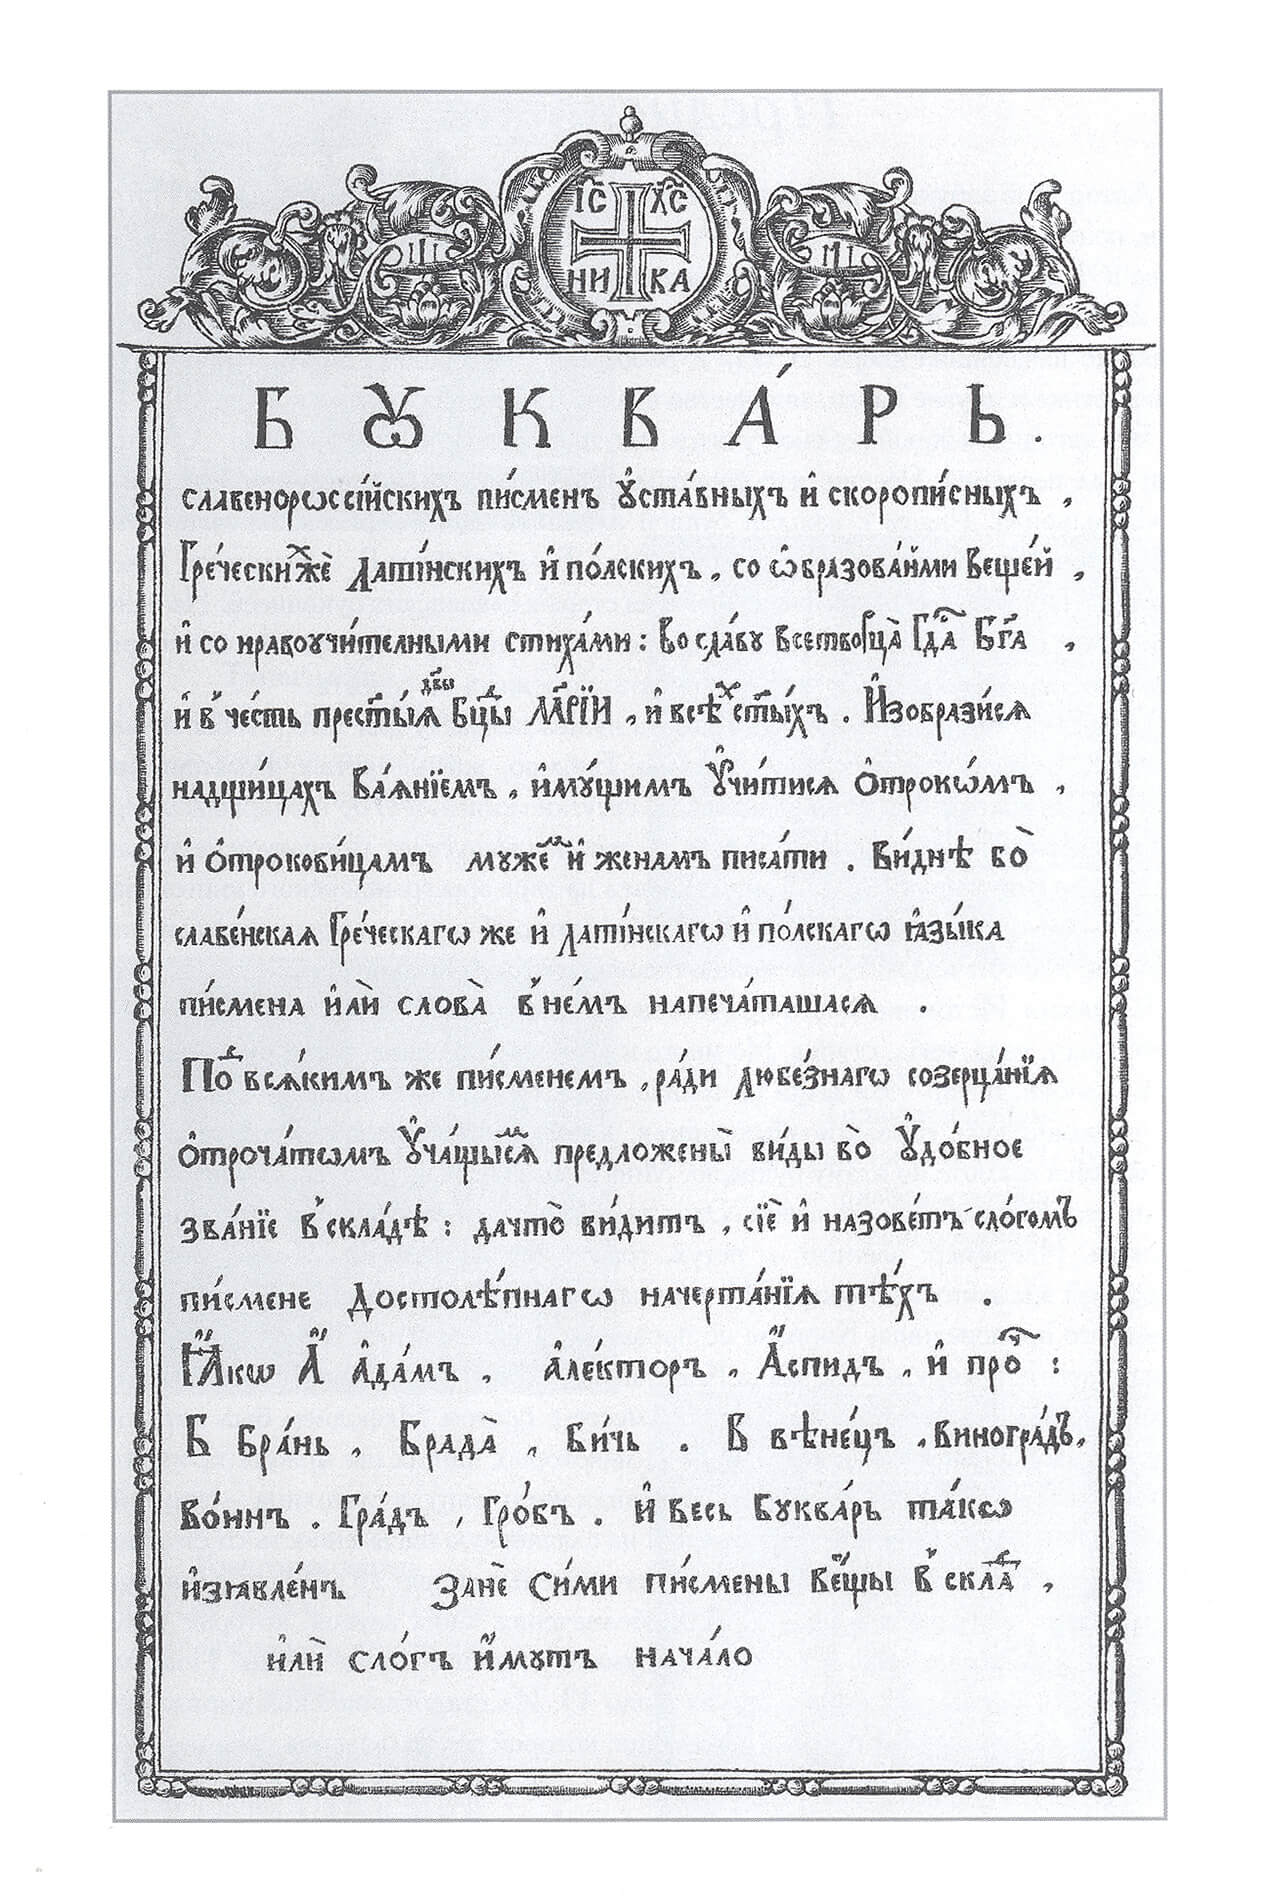 І҃С Х҃С
НИ КА
БꙊКВА́РЬ.
славенорѡссі́йскихъ пи́сменъ ᲂу҆ста́вныхъ и҆ скоропи́сныхъ ,
Гре́ческиⷯжѐ лати́нскихъ и҆ по́лскихъ , со ѡ҆бразова́ньми веще́й ,
и҆ со нравоучи́телными стиха́ми : Во сла́ву всетворца̀ Гдⷭ҇а Бг҃а ,
и҆ в̾ че́сть прест҃ы́ѧ Бц҃ы дв҃ы МР҃ІИ , и҆ всѣⷯ ст҃ы́хъ . И҆зобрази́сѧ
на дщи́цахъ ваѧ́нїемъ , и҆мꙋ́щимъ ᲂу҆чи́тисѧ ѻ҆трокѡ́мъ ,
и҆ ѻ҆трокови́цамъ мꙋже́мъ и҆ жена́мъ писа́ти . Ви́днѣ бо̀
славе́нскаѧ Гре́ческагѡ же и҆ лати́нскагѡ и҆ по́лскагѡ ꙗ҆зы́ка
пи́смена и҆лѝ слова̀ в̾ не́мъ напеча́ташасѧ .
Поⷣ всѧ́кимъ же пи́сменемъ , ра́ди любе́знагѡ созерца́нїѧ
ѻ҆троча́тѡмъ ᲂу҆ча́щыⷨсѧ предложены̀ ви́ды во̀ ᲂу҆до́бное
зва́нїе в̾ скла́дѣ : да что̀ ви́дитъ , сїѐ и҆ назове́тъ сло́гомъ
пи́смене достолѣ́пнагѡ начерта́нїѧ тѣ́хъ .
Ꙗ҆́кѡ А҆́ а҆да́мъ , а҆ле́кторъ , А҆́спидъ , и҆ про́ⷱ :
Б бра́нь , Брада̀ , би́чь . В вѣне́цъ , виногра́дъ ,
во́инъ . Гра́дъ , Гро́бъ . и҆ весь Буква́рь та́кѡ
и҆з̾ѧвле́нъ Занѐ си́ми пи́смены ве́щы в̾ склаⷣ ,
и҆лѝ сло́гъ и҆́мꙋтъ нача́ло